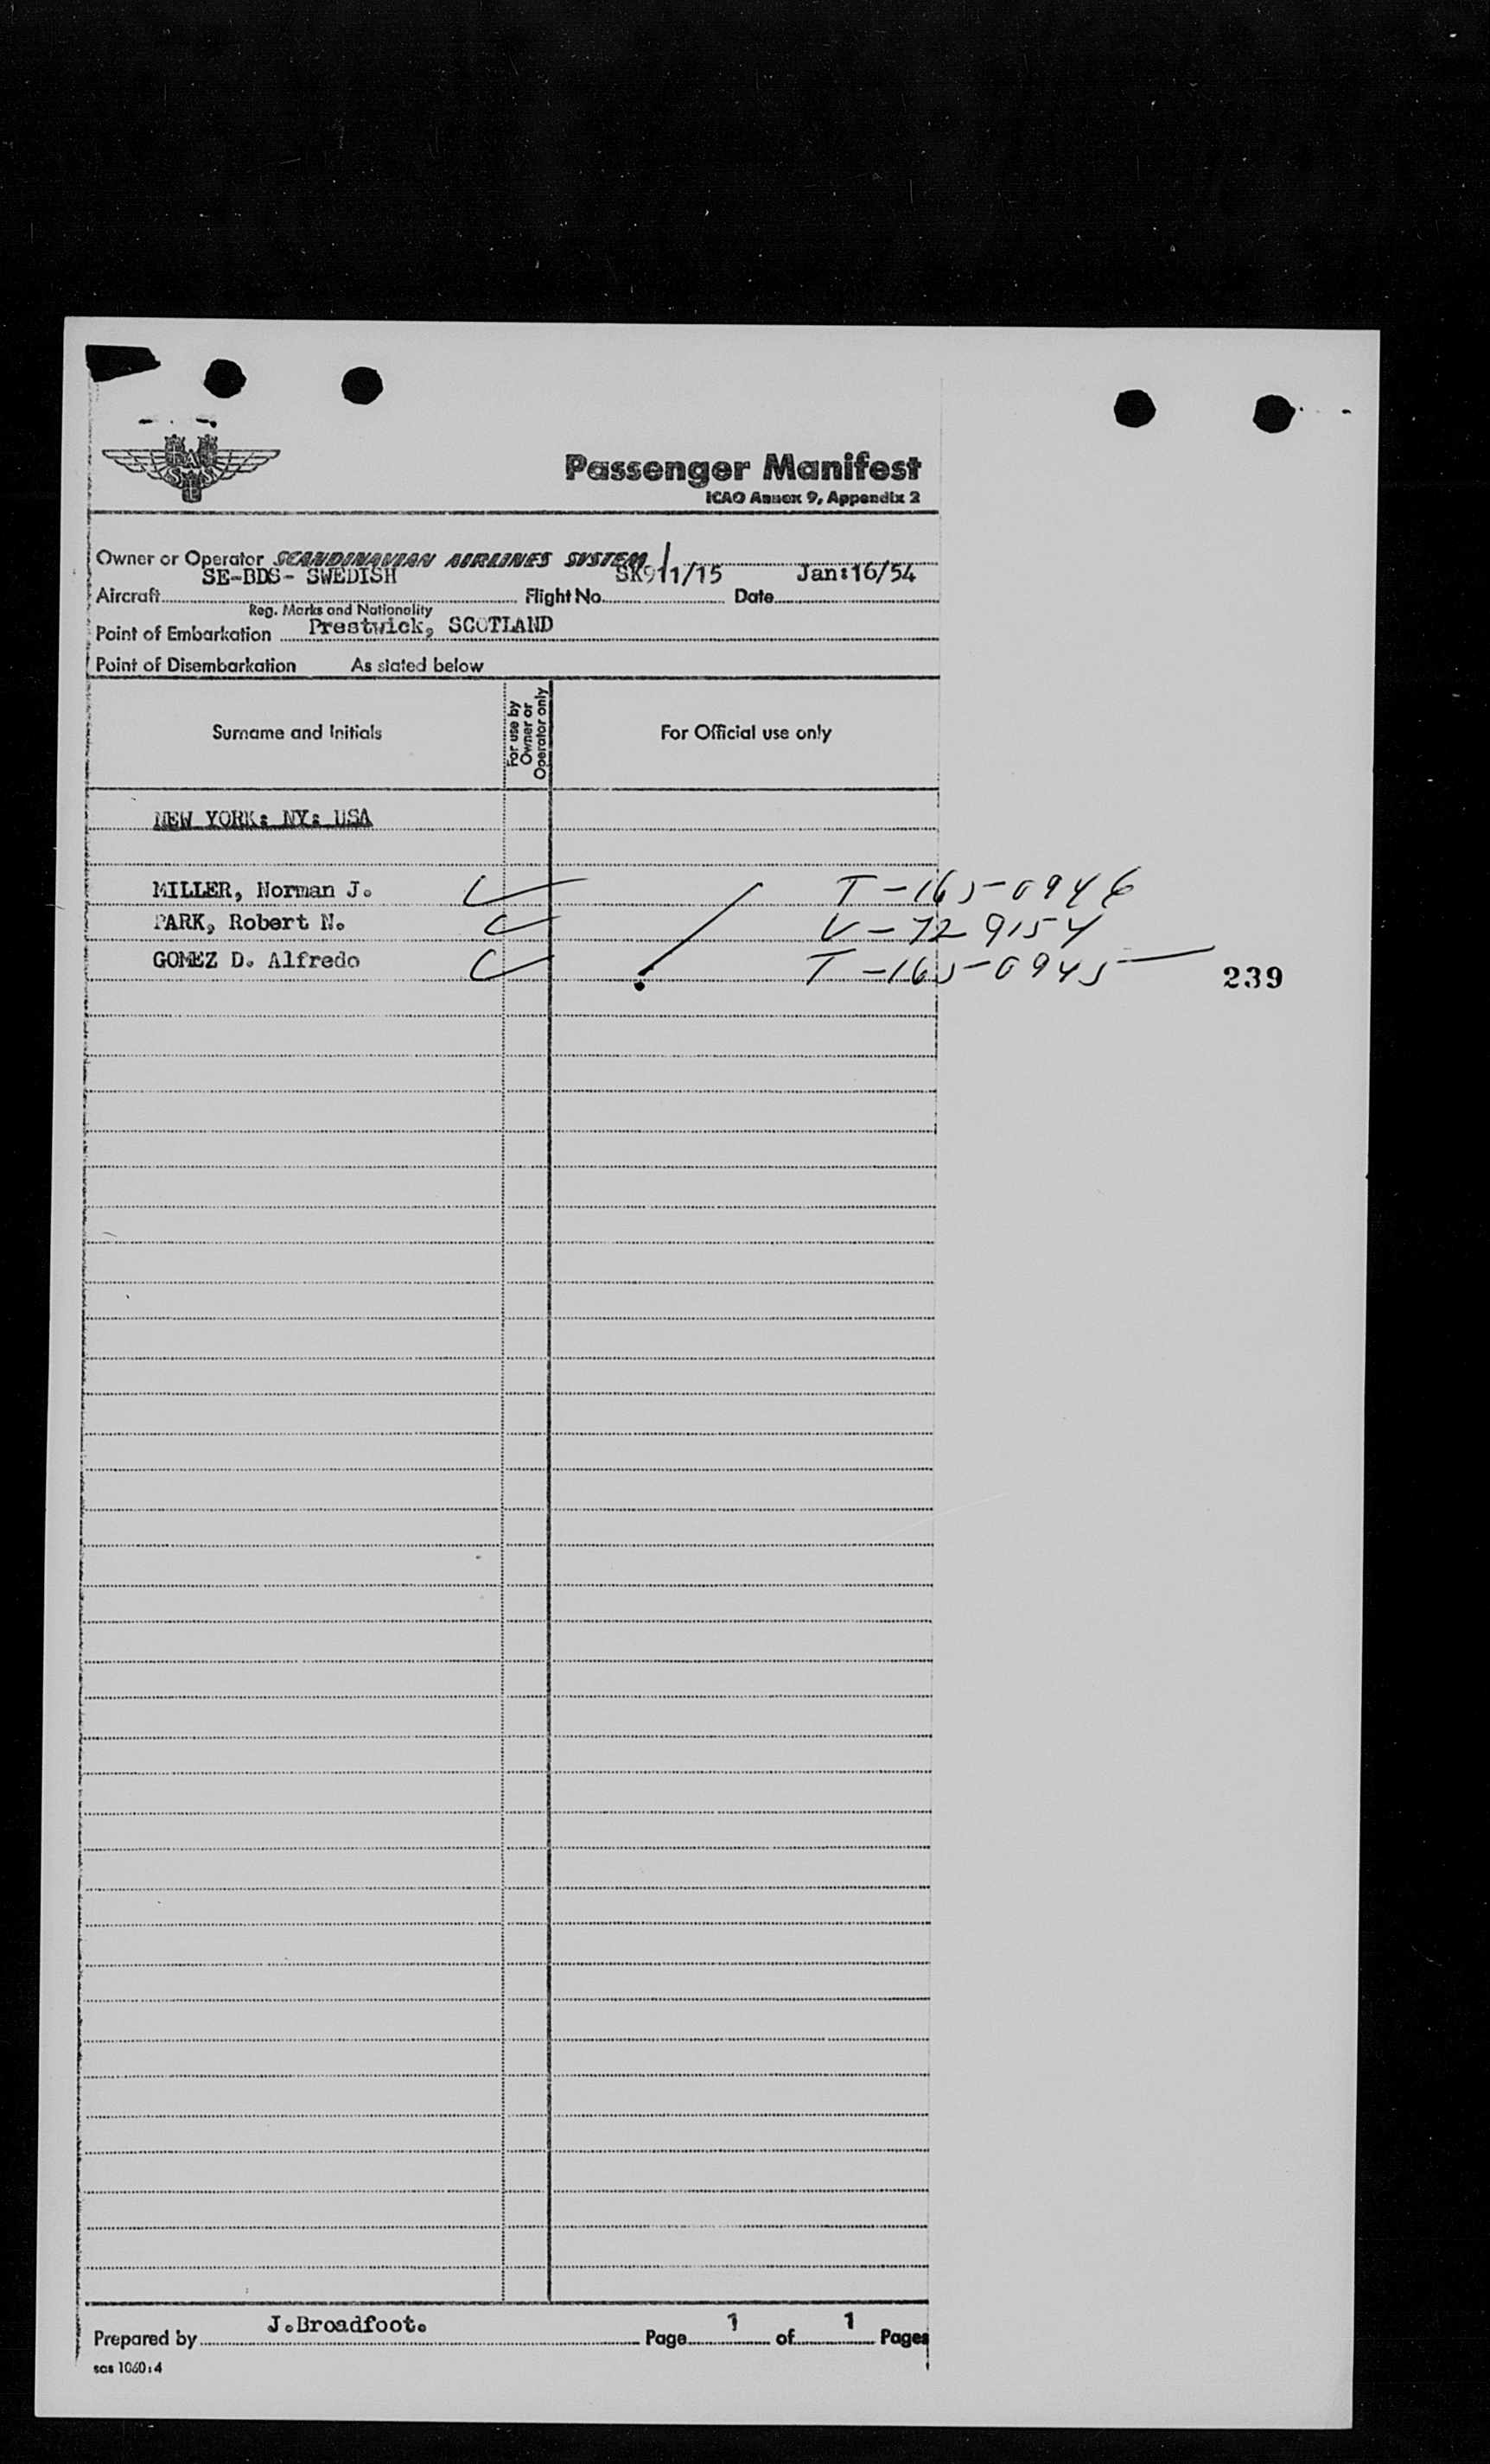 SAS
Passenger Manifest
ICAO Annex 9, Appendix 2
Owner or Operator SCANDINAVIAN AIRLINES SYSTEM
SE-BDS- SWEDISH SK911/15 Jan:16/54
Aircraft Flight No. Date
Reg. Marks and Nationality
Point of Embarkation Prestwick, SCOTLAND
Point of Disembarkation As stated below
Surname and Initials For use by Owner or Operator only For Official use only
NEW YORK: NY: USA
MILLER, Norman J. T-165-0946
PARK, Robert N. V-729154
GOMEZ D. Alfredo T-165-0945
239
Prepared by J.Broadfoot. Page 1 of 1 Pages
scs 1060:4